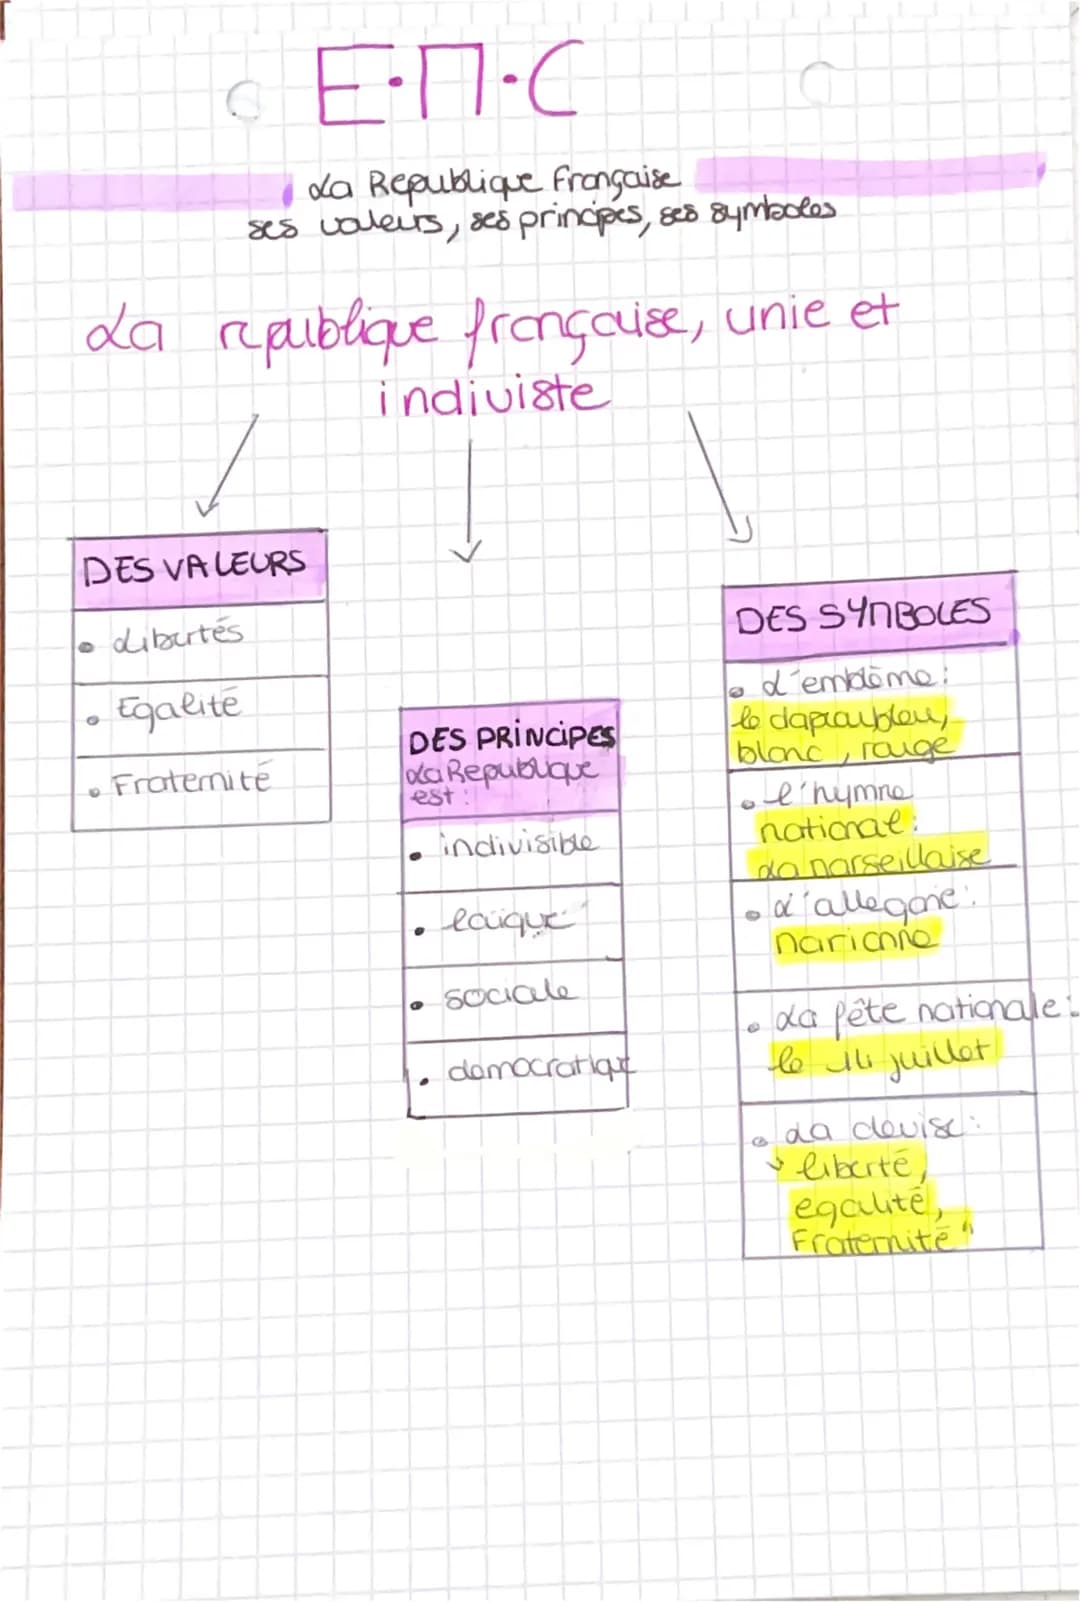 E.M.C
La Republique Française
ses valeurs, ses principes, ses symboles
La republique française, unie et
indiviste
DES VALEURS
• Libertés
• Egalité
• Fraternité
DES PRINCIPES
La Republique
est :
• indivisible
• laïque
• sociale
• democratique
DES SYMBOLES
• L'emblème :
le drapeau bleu,
blanc, rouge
• l'hymne
national :
La Marseillaise
• L'allegorie :
Marianne
• La fête nationale :
le 14 juillet
• La devise :
liberté,
egalité,
Fraternité"